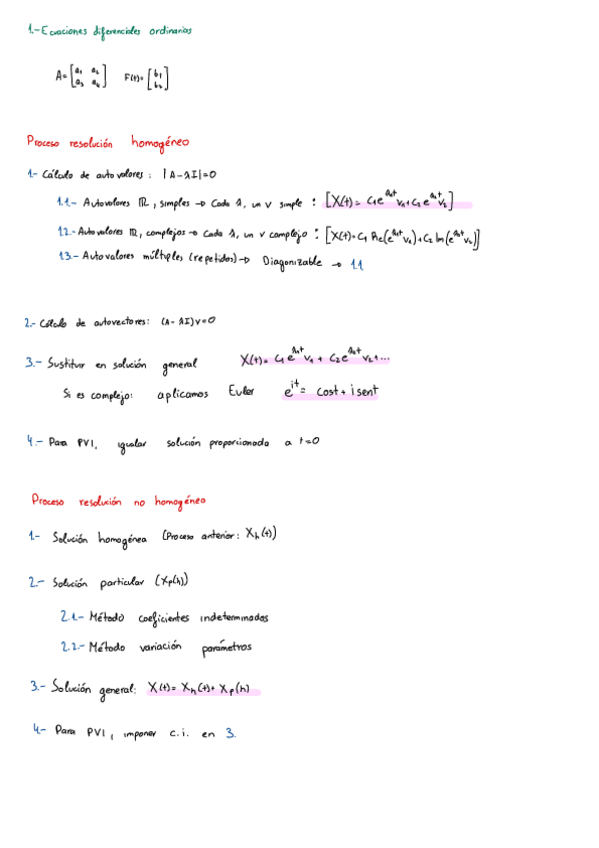 1.- Ecuaciones diferenciales ordinarias
A= [a₁ a₂ a₃ a₄] F(t)= [b₁ b₂]
Proceso resolución homogéneo
1- Cálculo de autovalores: |A-λI|=0
1.1- Autovalores ℝ, simples → Cada λ, un v simple : [X(t)= C₁e^{λ₁t}v₁+C₂e^{λ₂t}v₂]
1.2.- Autovalores ℝ, complejos → Cada λ, un v complejo : [X(t)=C₁ Re(e^{λ₁t}v₁)+C₂ Im(e^{λ₂t}v₂)]
1.3.- Autovalores múltiples (repetidos) → Diagonizable → 1.1
2.- Cálculo de autovectores: (A-λI)v=0
3.- Sustituir en solución general X(t)= C₁e^{λ₁t}v₁ + C₂e^{λ₂t}v₂+...
Si es complejo: aplicamos Euler e^{it}= cost+isent
4.- Para PVI, igualar solución proporcionada a t=0
Proceso resolución no homogéneo
1- Solución homogénea (Proceso anterior: X_h(t))
2.- Solución particular (X_p(h))
2.1.- Método coeficientes indeterminados
2.2.- Método variación parámetros
3.- Solución general: X(t)= X_h(t)+ X_p(h)
4.- Para PVI, imponer c.i. en 3.